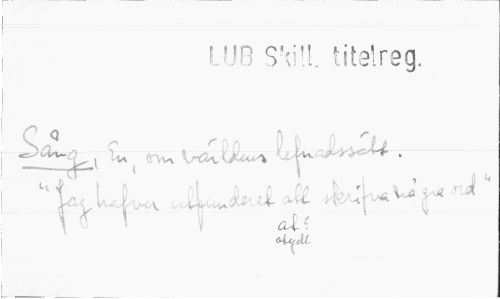 LUB Skill. titelreg.
Sång, En, om världens lefnadssätt.
"Jag hafver utfunderat att skrifva några ord"
at?
otydl.